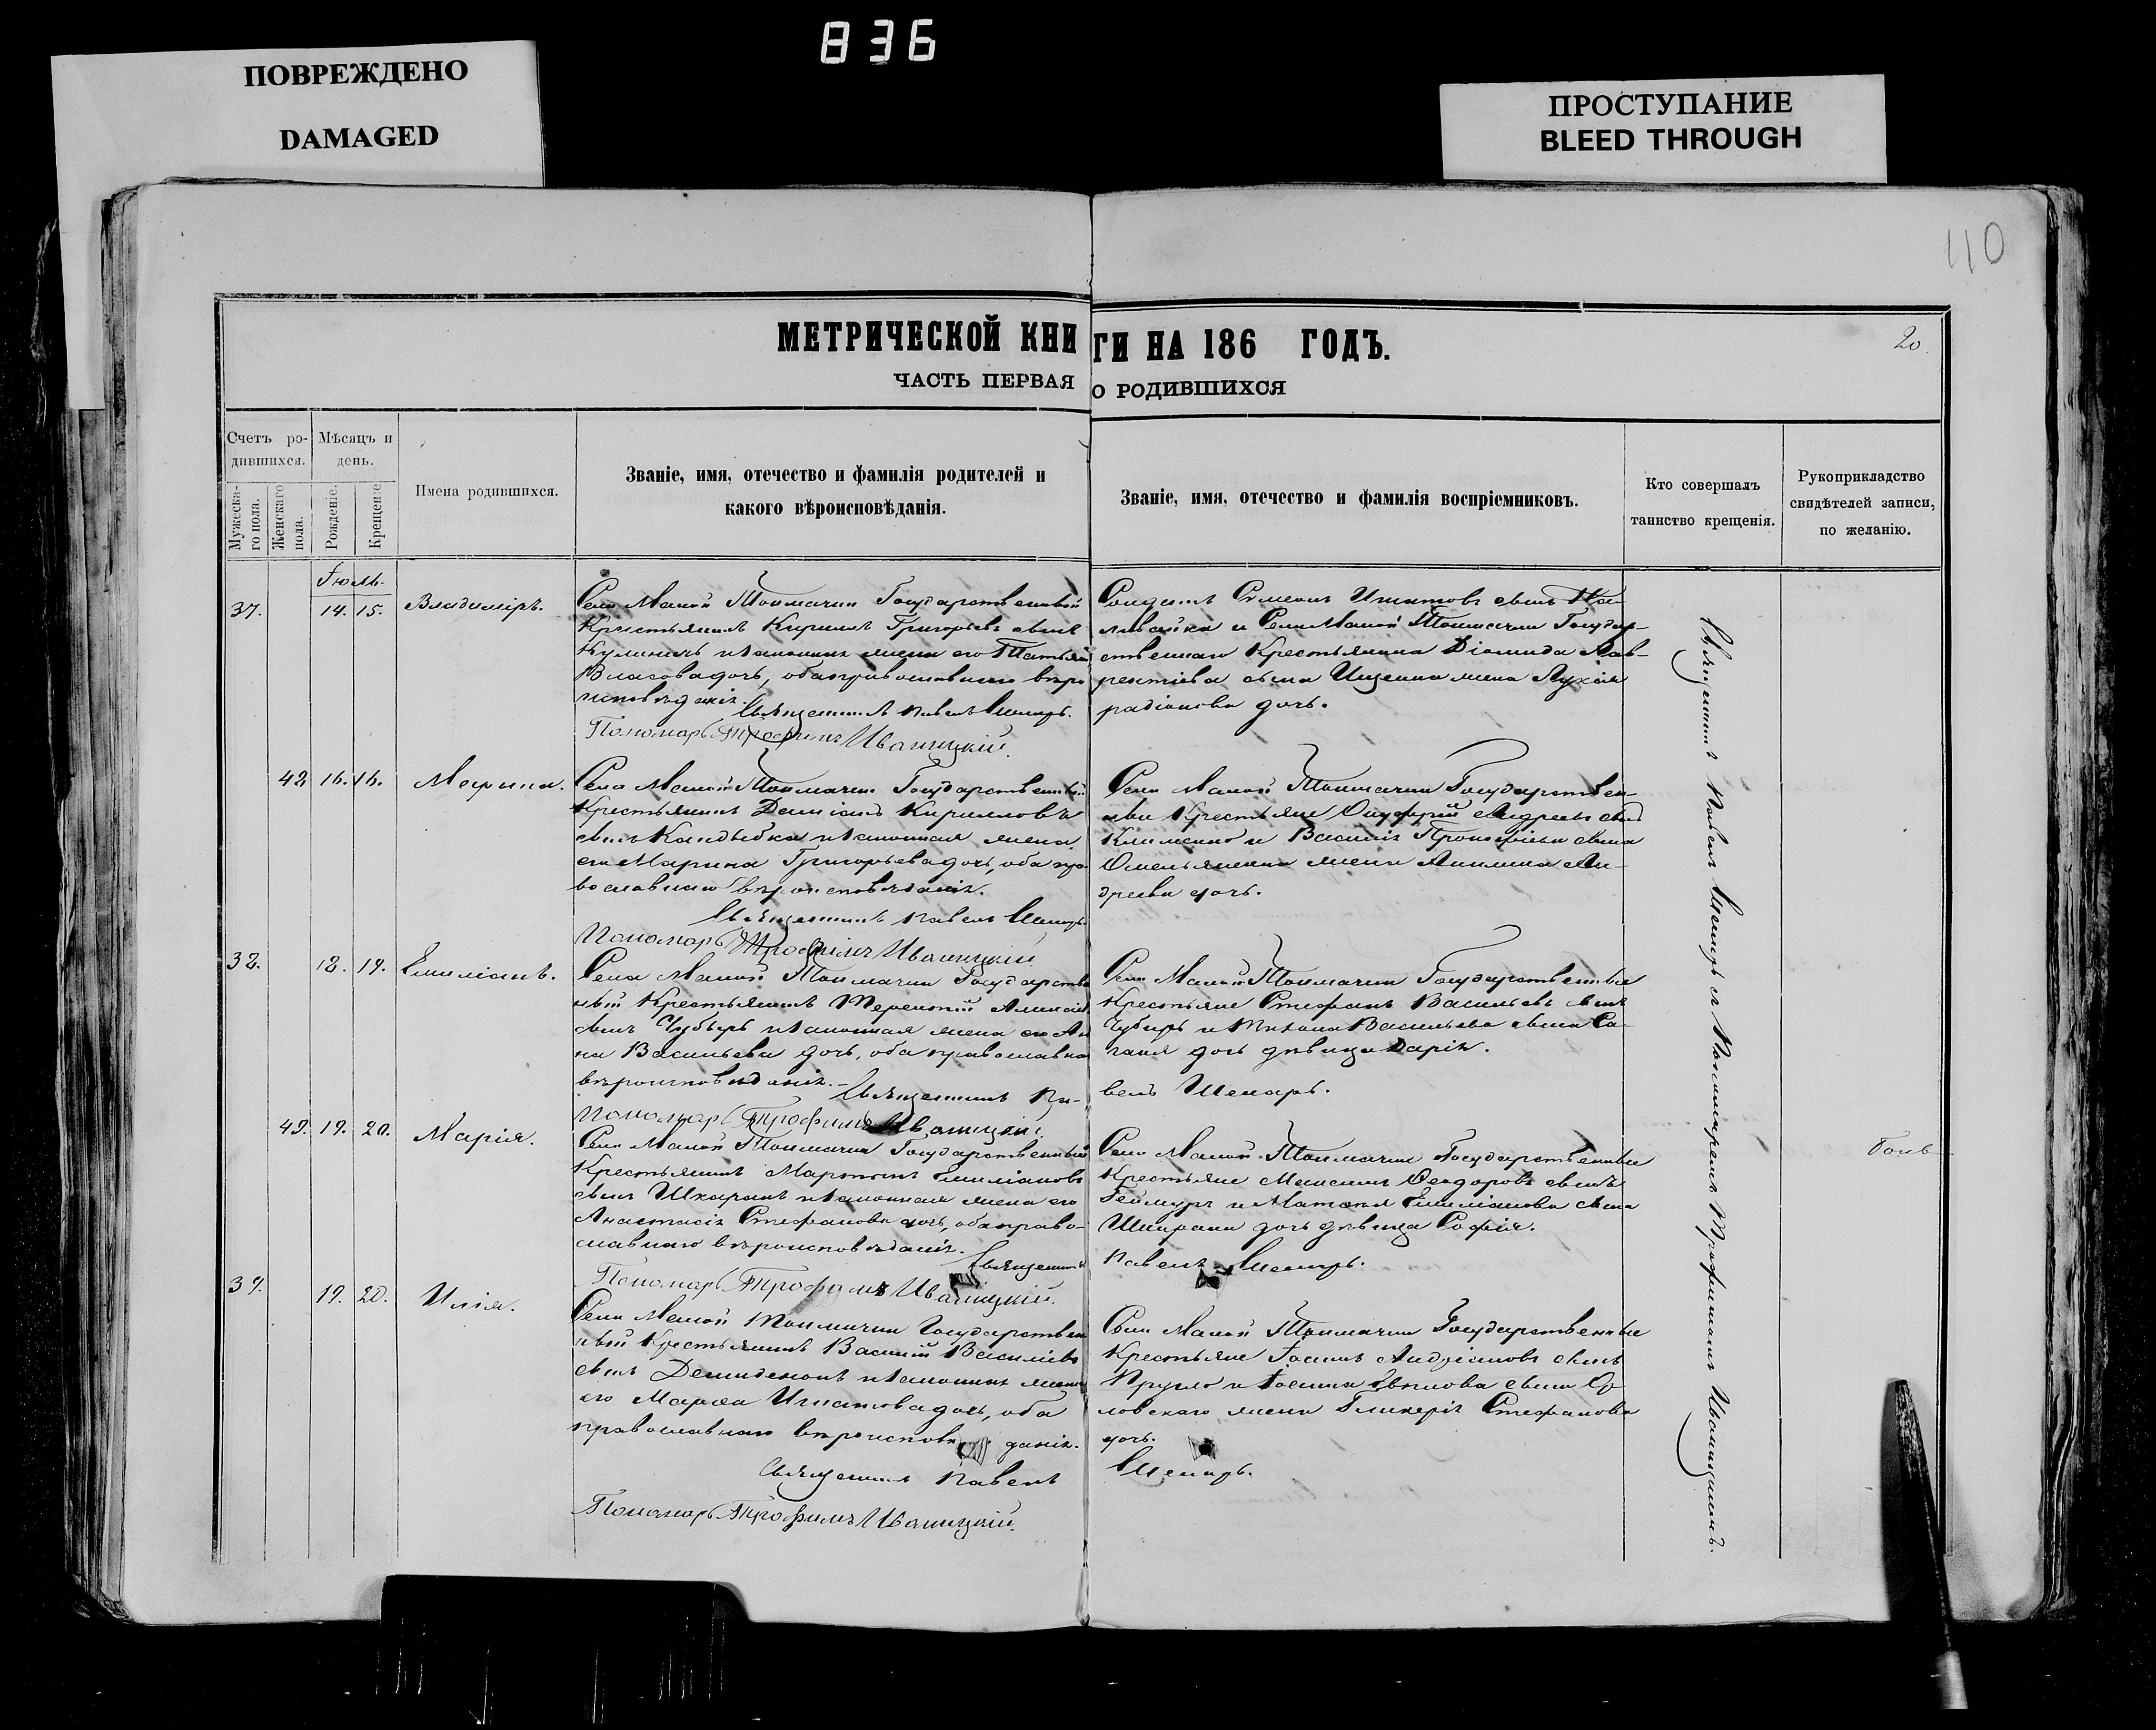 836
ПОВРЕЖДЕНО
DAMAGED
ПРОСТУПАНИЕ
BLEED THROUGH
110
МЕТРИЧЕСКОЙ КНИГИ НА 186 ГОДЪ.
20.
ЧАСТЬ ПЕРВАЯ О РОДИВШИХСЯ
Счетъ ро-
дившихся.
Мужеска-
го пола.
Женскаго
пола.
Мѣсяцъ и
день.
Рожденіе.
Крещеніе
Имена родившихся.
Званіе, имя, отечество и фамилія родителей и
какого вѣроисповѣданія.
Званіе, имя, отечество и фамилія воспріемниковъ.
Кто совершалъ
таинство крещенія.
Рукоприкладство
свидѣтелей записи,
по желанію.
Іюль.
37.
14. 15.
Владиміръ.
Села Малой Токмачки Государственный
Крестьянинъ Кирилъ Григорьевъ сынъ
законная жена его Татьяна
Власова дочь, оба православнаго вѣро
исповѣданія.
Священникъ Павелъ
Пономарь Трофимъ Иваницкій.
Солдатъ Симеонъ Игнатовъ сынъ
и Села Малой Токмачки Государ-
ственнаго Крестьянина Діомида Лав-
рентіева сына Ищенка жена Лукія
радіонова дочь.
42
16. 16.
Марина.
Села Малой Токмачки Государственный
Крестьянинъ Даміанъ Кирилловъ
сынъ Кандыбка и законная жена
его Марина Григорьева дочь, оба пра
вославнаго вѣроисповѣданія.
Священникъ Павелъ
Пономарь Трофимъ Иваницкій
Села Малой Токмачки Государствен-
ные Крестьяне Онуфрій Андреевъ сынъ
Клименко и Василія Прокофіева сына
Омельяненка жена Акилина Ан-
дреева дочь.
38.
18. 19.
Емиліанъ.
Села Малой Токмачки Государстве
ный Крестьянинъ Терентій
сынъ Чубырь и законная жена его Ан
на Васильева дочь, оба православна
вѣроисповѣданія.-
Священникъ Па-
Пономарь Трофимъ Иваницкій.
Села Малой Токмачки Государственные
Крестьяне Стефанъ Васильевъ сынъ
Чубырь и Тихона Васильева сына Са-
гана дочь дѣвица Дарія.
велъ
43. 19. 20.
Марія.
Села Малой Токмачки Государственный
Крестьянинъ Мартинъ Емиліановъ
сынъ и законная жена его
Анастасія Стефанова дочь, оба право-
славнаго вѣроисповѣданія.
Священникъ
Пономарь Трофимъ Иваницкій.
Села Малой Токмачки Государственные
Крестьяне Максимъ Ѳеодоровъ сынъ
и Емиліанова сына
дочь дѣвица Софія.
Павелъ
39.
19. 20.
Илія.
Села Малой Токмачки Государствен
ный Крестьянинъ Василій Василіевъ
сынъ Демиденокъ и законная жена
его Марѳа Игнатова дочь, оба
православнаго вѣроисповѣданія.
Священникъ Павелъ
Пономарь Трофимъ Иваницкій.
Села Малой Токмачки Государственные
Крестьяне Іоаннъ Андріановъ сынъ
и Іоанна сына Ор
ловскаго жена Гликерія Стефанова
дочь.
Священникъ Павелъ съ Пономаремъ Трофимомъ Иваницкимъ.